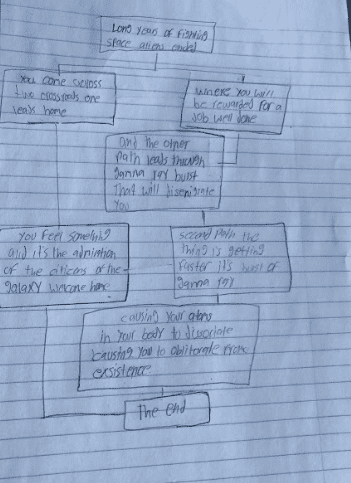 Long years of fighting
space aliens ended
you come across
two crossroads one
leads home
where you will
be rewarded for a
Job well done
and the other
Path leads through
gamma ray burst
That will disenigrate
You
you feel something
and it's the admiration
of the citicens of the
galaxy welcome home
second Path the
thing is getting
Faster it's burst of
gamma ray
causing your atoms
in your body to
causing you to obliterate from
exsistence
The end